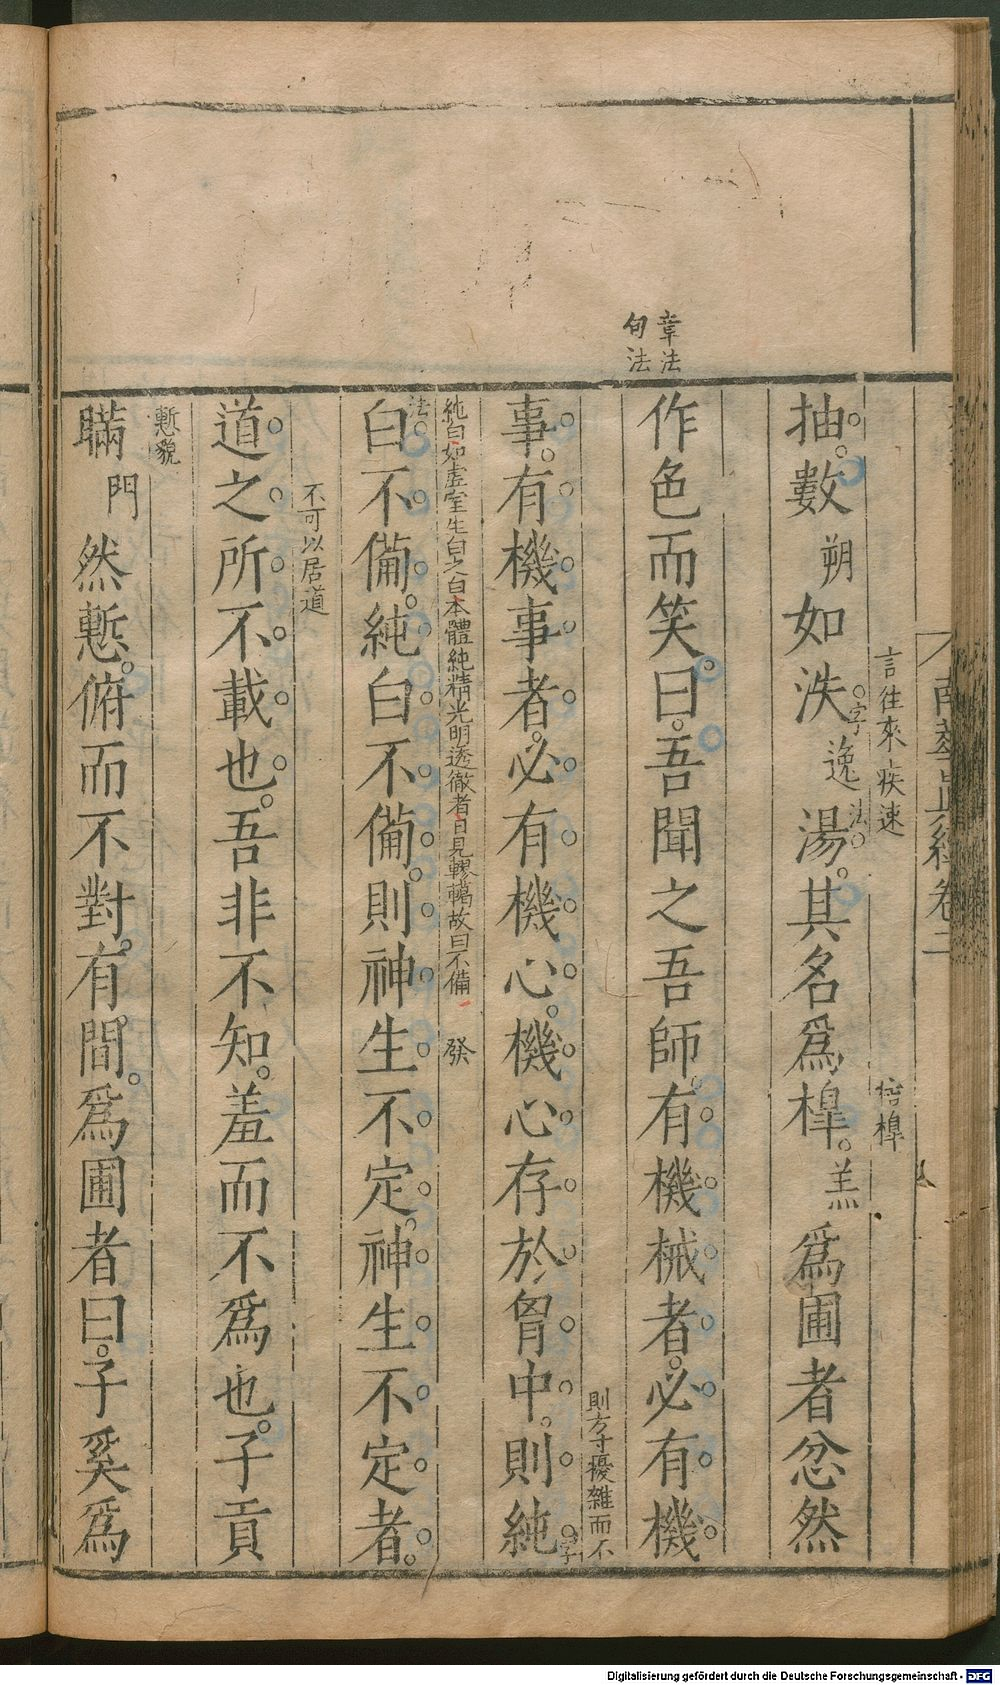 南華真經卷二
言往來疾速
桔槹
抽數朔如泆逸湯其名爲槹羔爲圃者忿然
字法
章法
句法
作色而笑曰吾聞之吾師有機械者必有機
則方寸擾雜而不
事有機事者必有機心機心存於胷中則純
字法
純白如虛室生白之白本體純精光明透徹者日見轇轕故曰不備
發
白不備純白不備則神生不定神生不定者
不可以居道
道之所不載也吾非不知羞而不爲也子貢
慙貌
瞞門然慙俯而不對有間爲圃者曰子奚爲
Digitalisierung gefördert durch die Deutsche Forschungsgemeinschaft - DFG